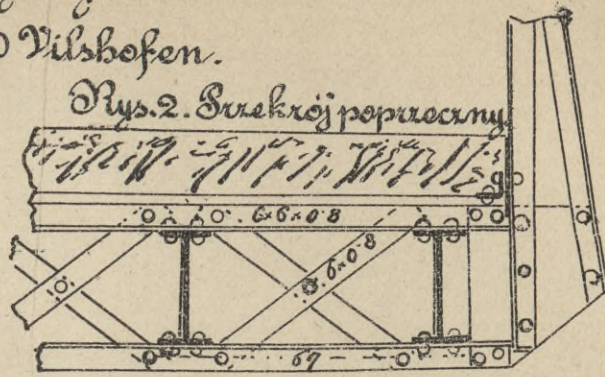 Vilshofen.
Rys. 2. Przekrój poprzeczny
6×6×0·8
6×0·8